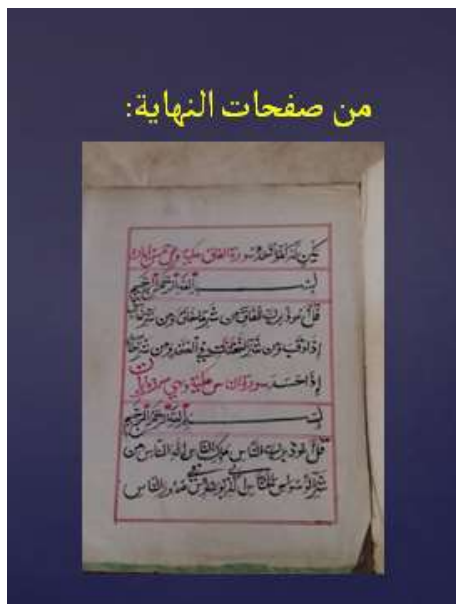 من صفحات النهاية:
يكن له كفوا احد سورة الفلق مكية وهي خمس ايات
بسم الله الرحمن الرحيم
قل اعوذ برب الفلق من شر ما خلق ومن شر غاسق
إذا وقب ومن شر النفثت في العقد ومن شر حاسد
إذا حسد سورة الناس مكية وهي
بسم الله الرحمن الرحيم
قل اعوذ برب الناس ملك الناس اله الناس من
شر الوسواس الخناس الذي يوسوس في صدور الناس